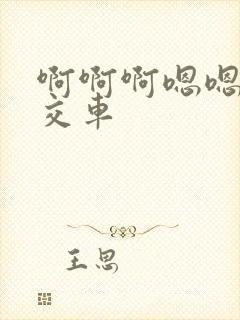 啊啊啊嗯嗯
交车
王思